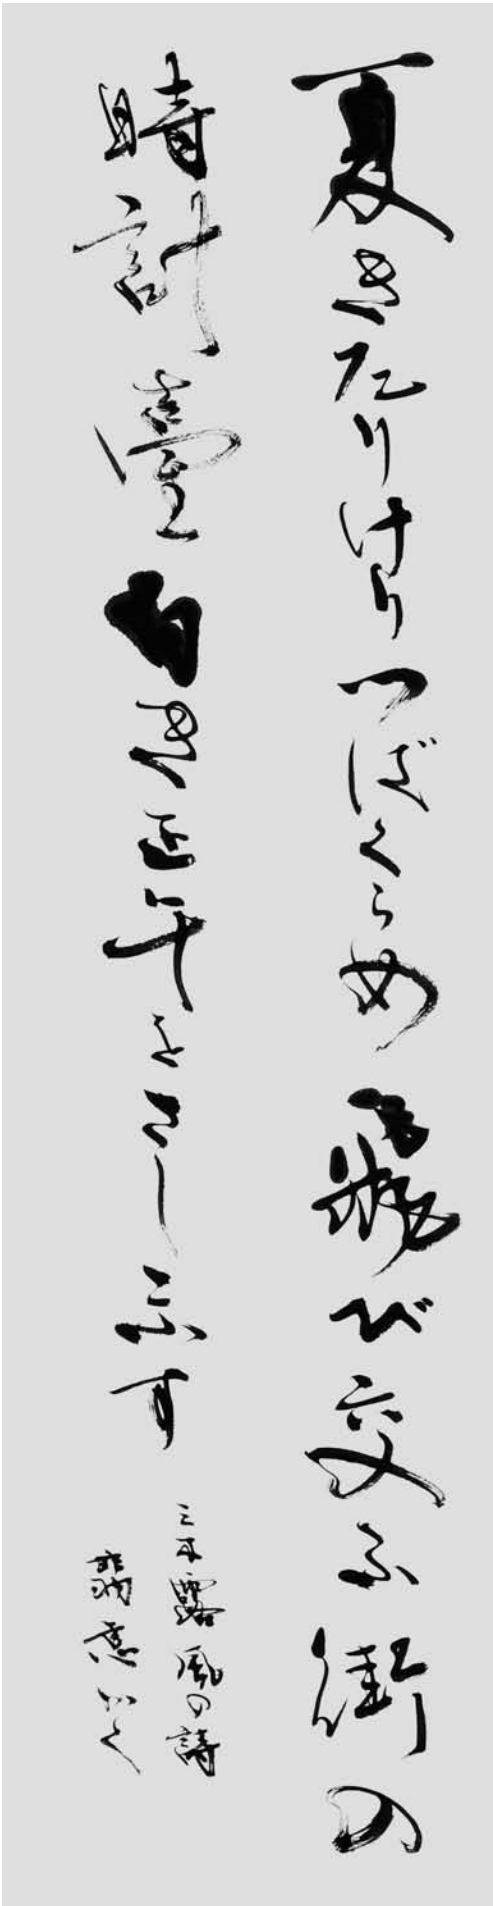 夏きたりけりつばくらめ飛び交ふ街の
時計臺白き正午をさし示す
三木露風の詩
翡恵かく